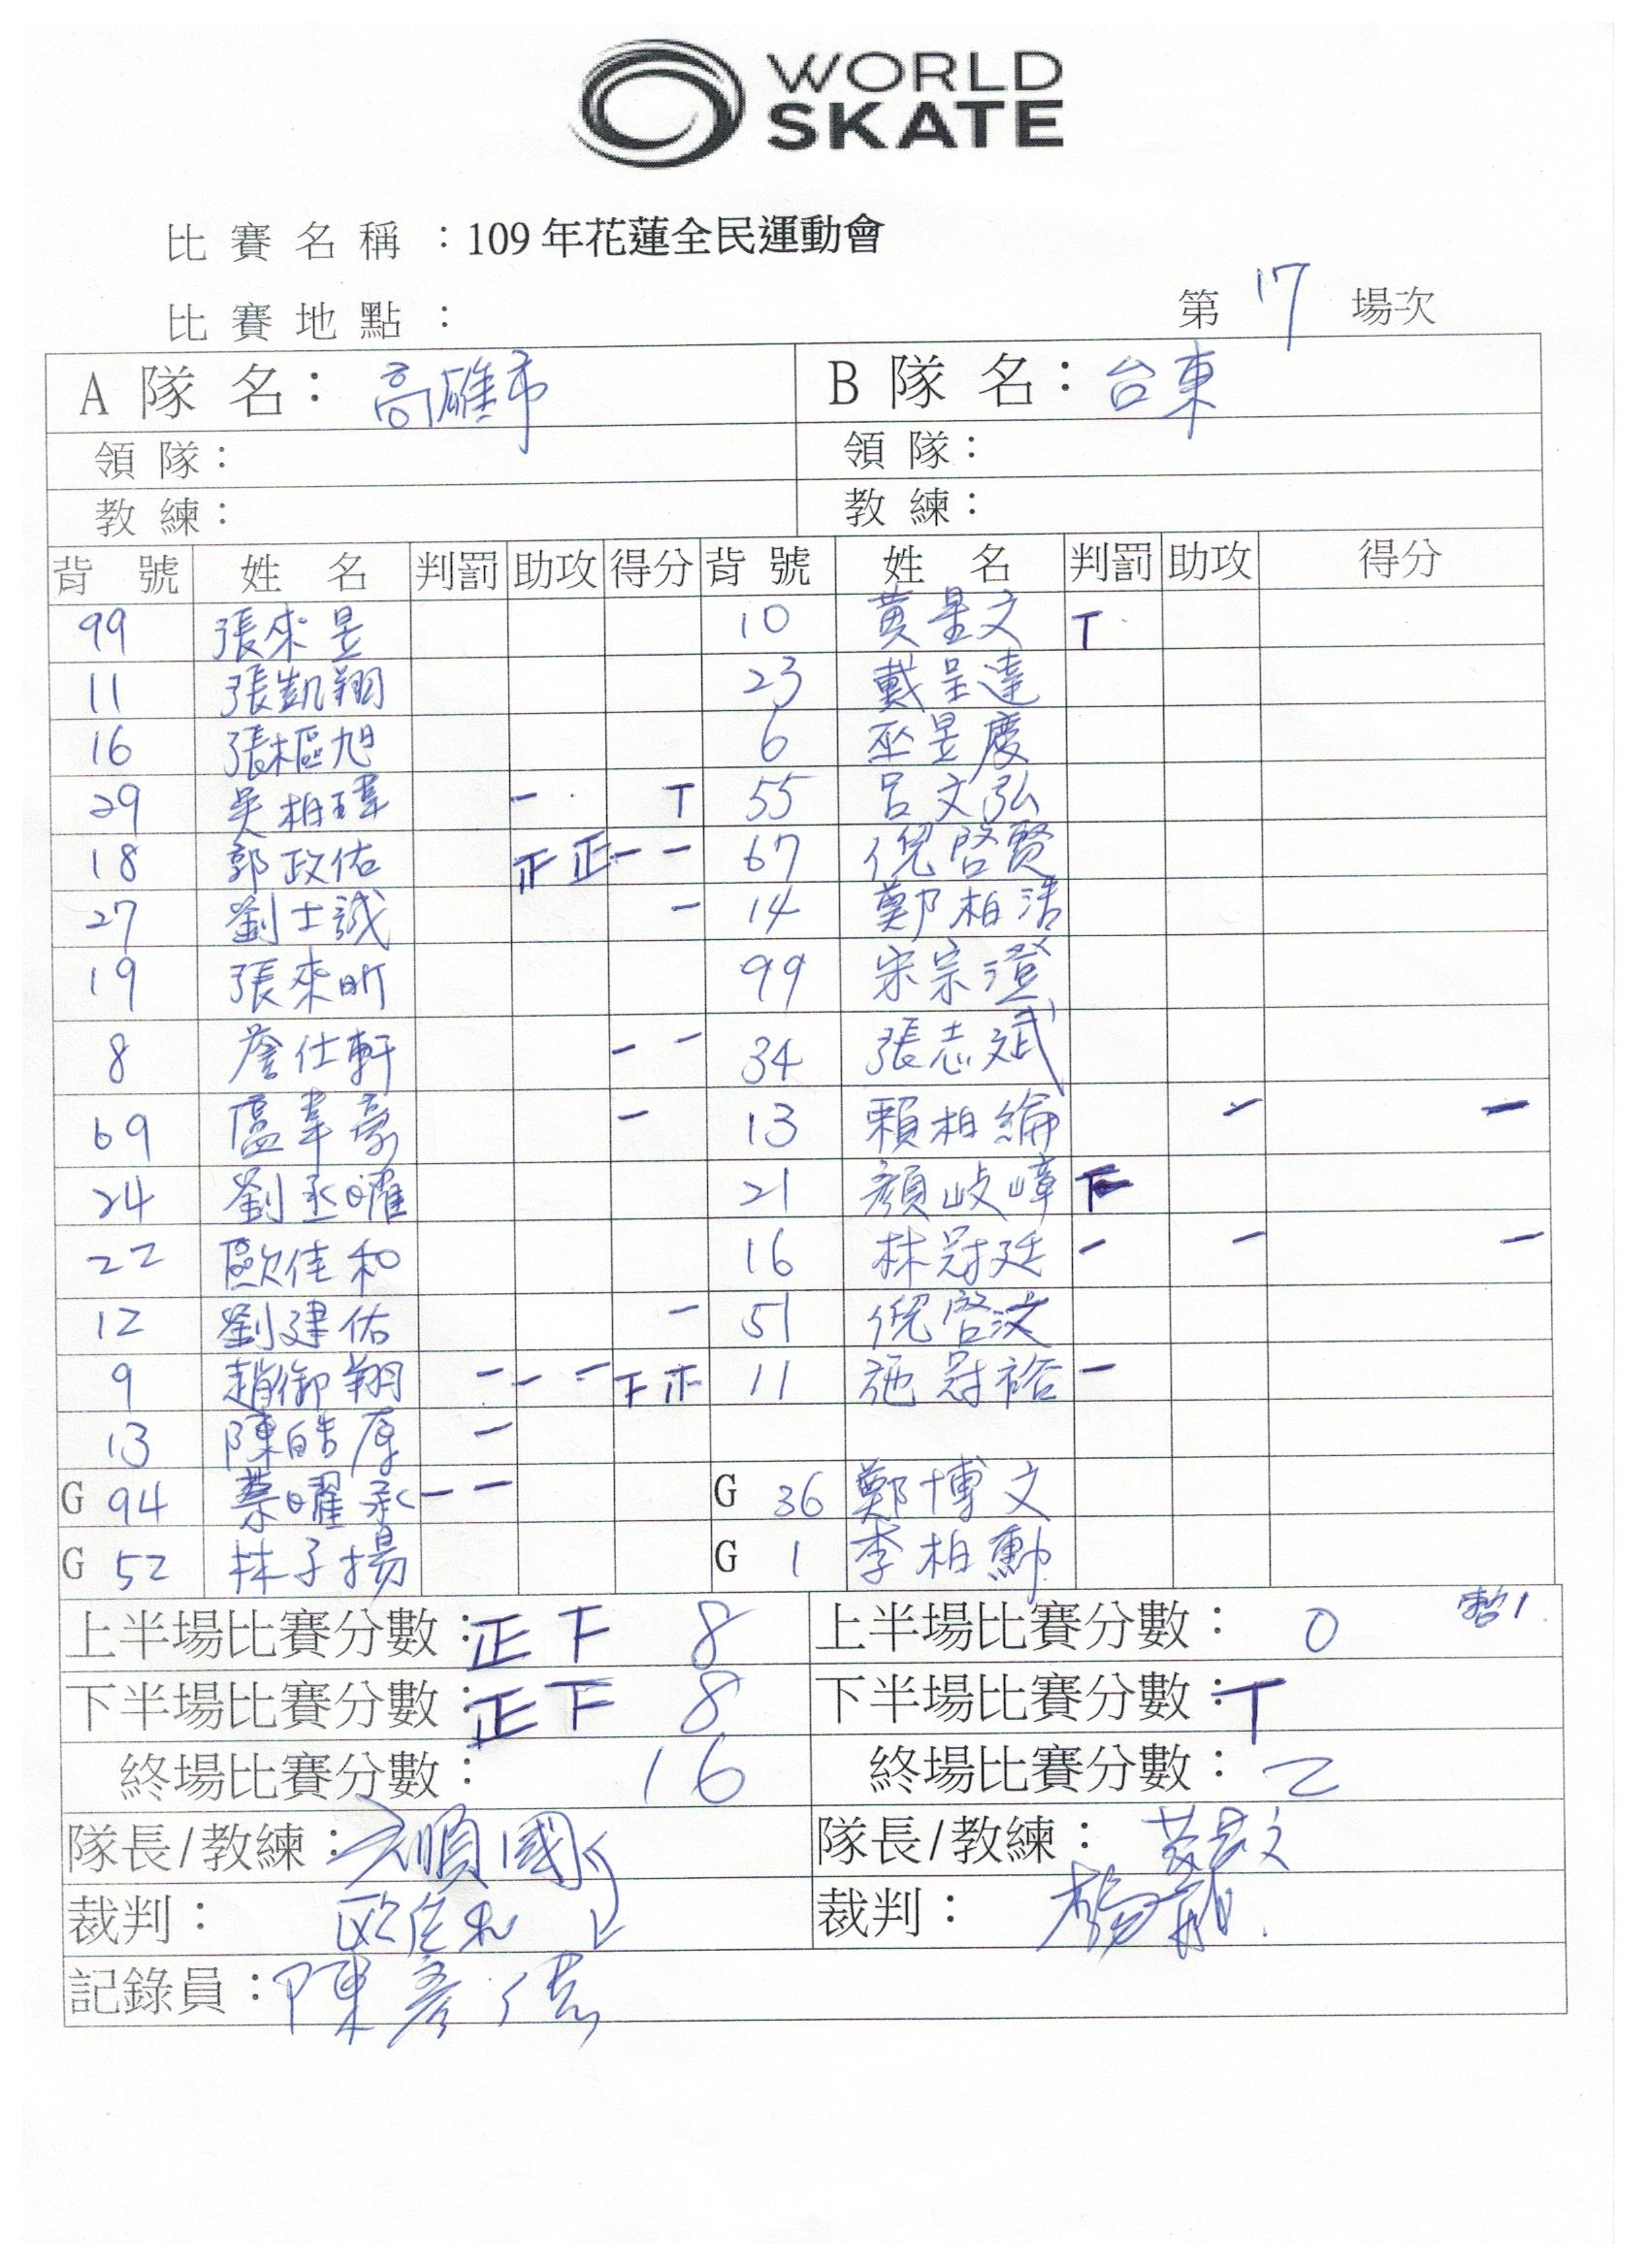 WORLD
SKATE
比賽名稱：109年花蓮全民運動會
比賽地點：
第 17 場次
A 隊 名： 高雄市 B 隊 名： 台東
領 隊： 領 隊：
教 練： 教 練：
背 號 姓 名 判罰 助攻 得分 背 號 姓 名 判罰 助攻 得分
99 張來昱 10 黃星文 T
11 張凱翔 23 戴呈達
16 張樞旭 6 巫昱慶
29 吳柏瑋 一 T 55 呂文弘
18 郭政佑 正 正 一 一 67 倪啓賢
27 劉士誠 一 14 鄭柏浩
19 張來昕 99 宋宗澄
8 詹仕軒 一 一 34 張志斌
69 盧韋豪 一 13 賴柏綸 一 一
24 劉丞曜 21 顏岐嶂 下
22 歐佳和 16 林冠廷 一 一 一
12 劉建佑 一 51 倪啓汶
9 趙御翔 一 一 一 下 正 11 施冠裕 一
13 陳皓厚 一
G 94 蔡曜承 一 一 G 36 鄭博文
G 52 林子揚 G 1 李柏勳
上半場比賽分數：正下 8 上半場比賽分數： 0 暫1
下半場比賽分數：正下 8 下半場比賽分數：T
終場比賽分數： 16 終場比賽分數： 2
隊長/教練： 順國 隊長/教練：
裁判： 歐佳和 裁判：
記錄員：陳彥